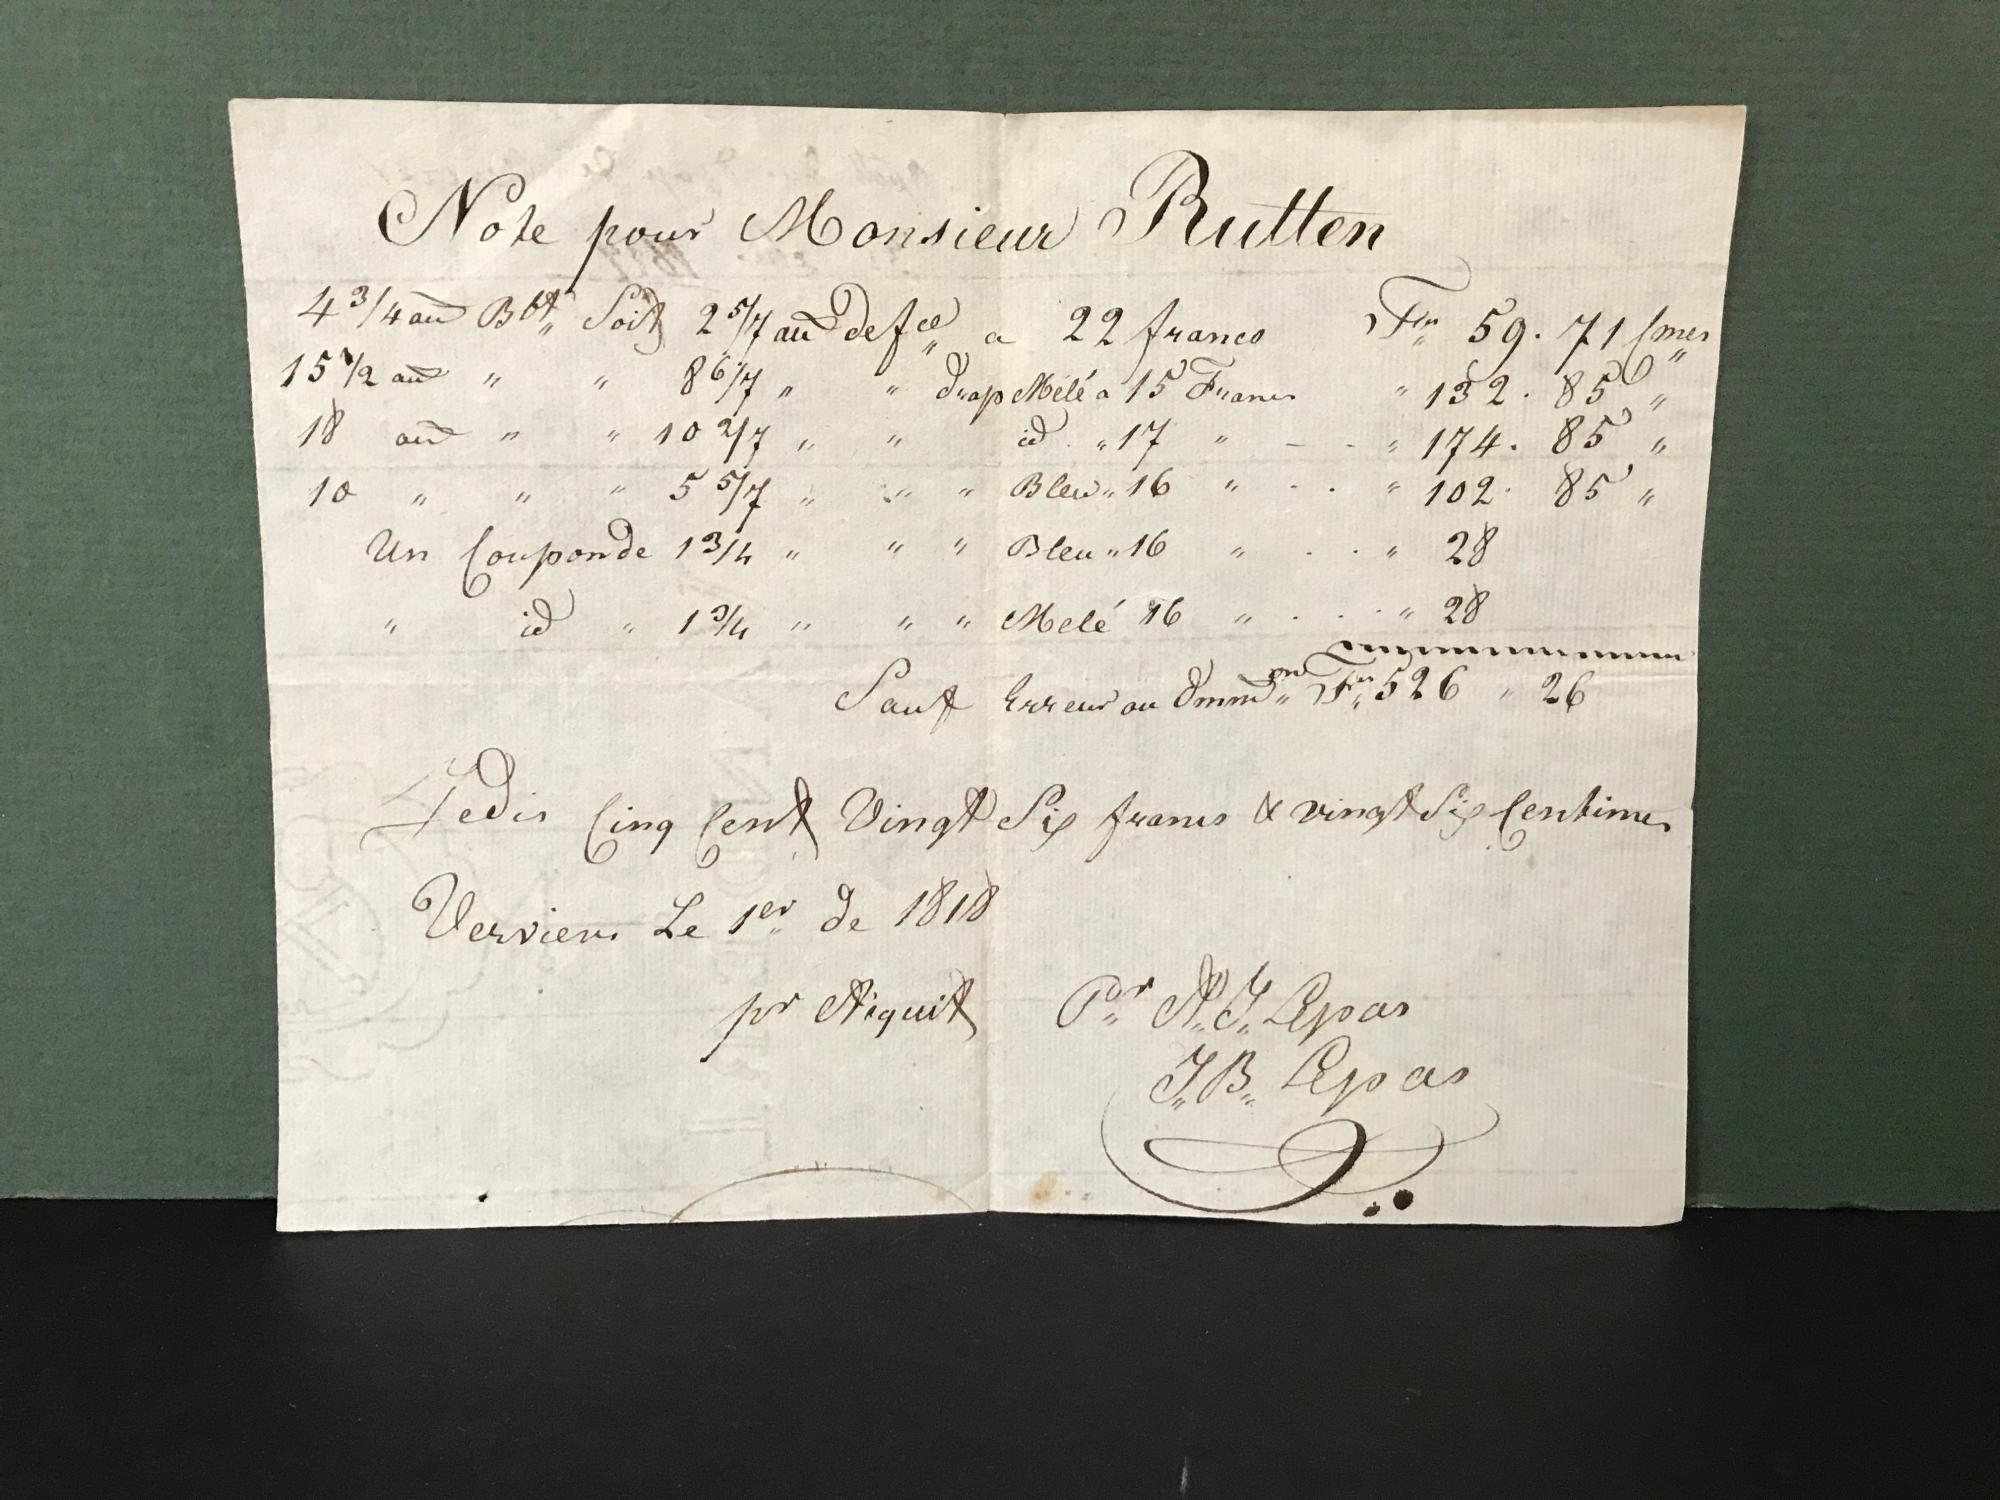 Note pour Monsieur Rutten
4 3/4 au Bbt„ Soit 2 5/7 au de fce„ a 22 francs Frs„ 59. 71 Cmes„
15 1/2 au „ „ 8 6/7 „ „ drap Mélé a 15 Francs „ 132. 85 „
18 au „ „ 10 2/7 „ „ id „ 17 „ - - „ 174. 85 „
10 „ „ „ 5 5/7 „ „ „ Bleu „ 16 „ . . „ 102. 85 „
Un Coupon de 1 3/4 „ „ „ Bleu „ 16 „ . . „ 28
„ id „ 1 3/4 „ „ „ Melé 16 „ . . „ 28
Sauf Erreur ou Ommon„ Frs„ 526 „ 26
Jedis Cinq Cent Vingt Six francs & vingt Six Centimes
Verviers Le 1er de 1818
pr Aquit Por N„ J„ Lepas
J„ B„ Lepas